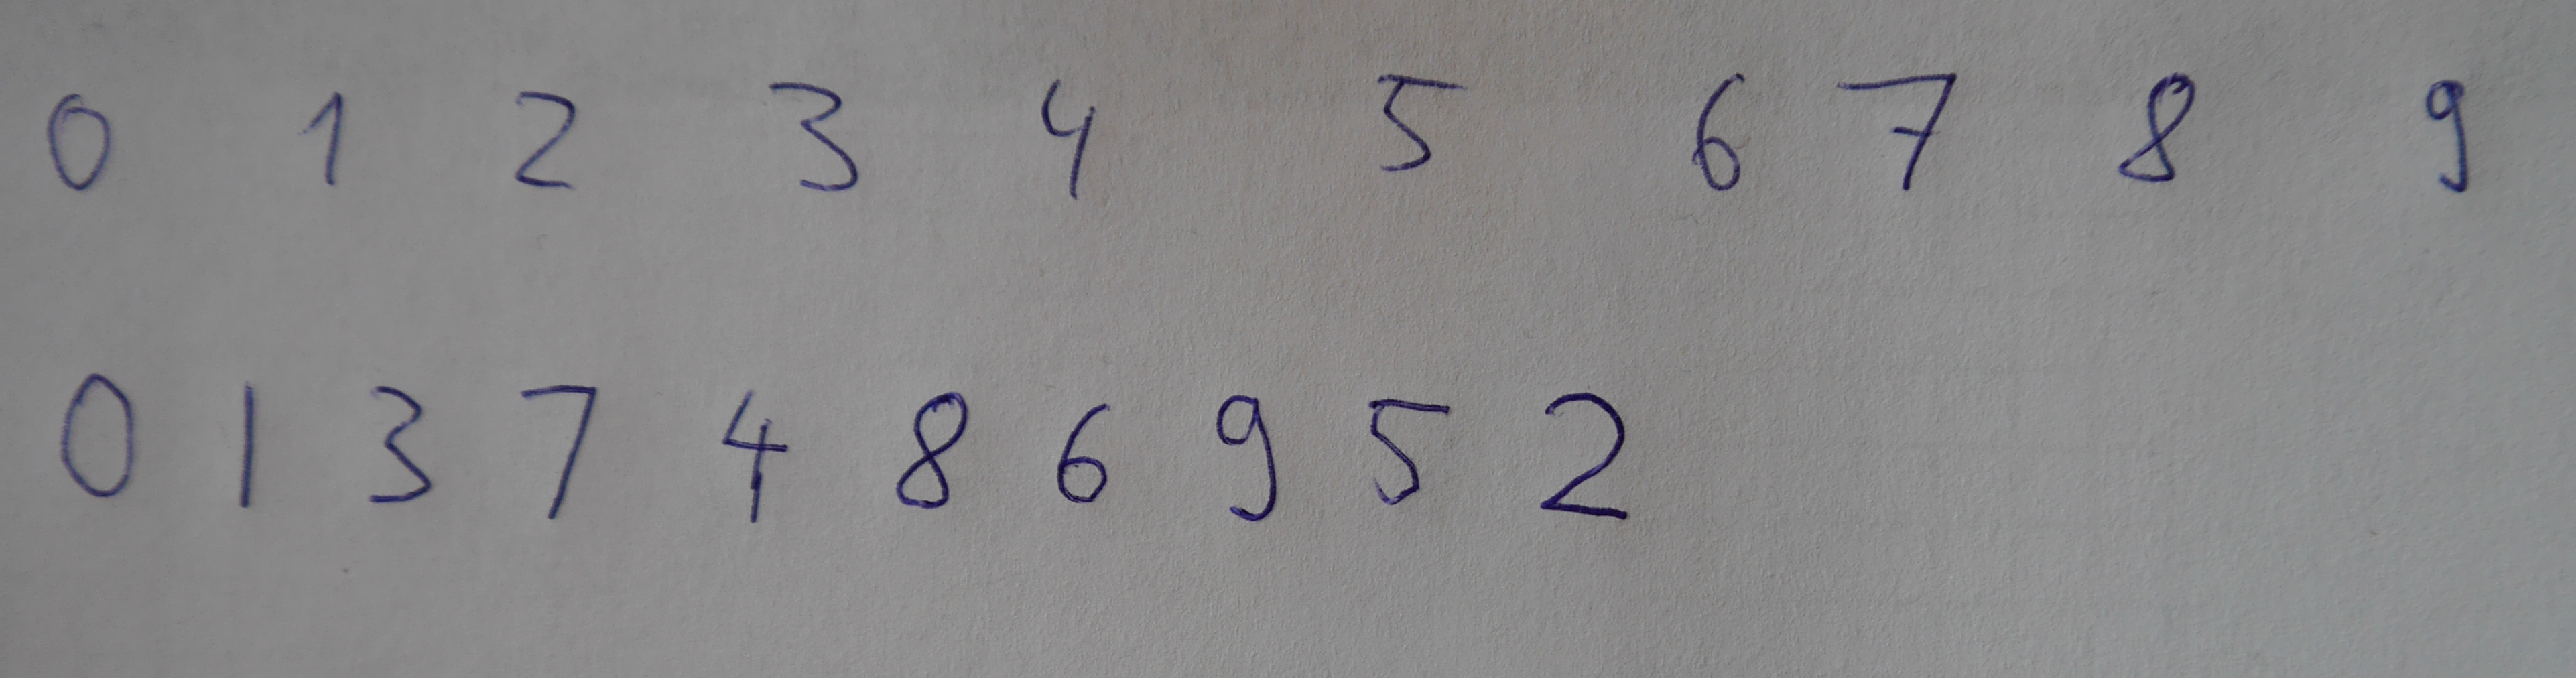 0 1 2 3 4 5 6 7 8 9
0 1 3 7 4 8 6 9 5 2